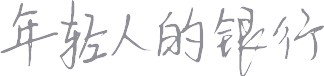 年轻人的银行